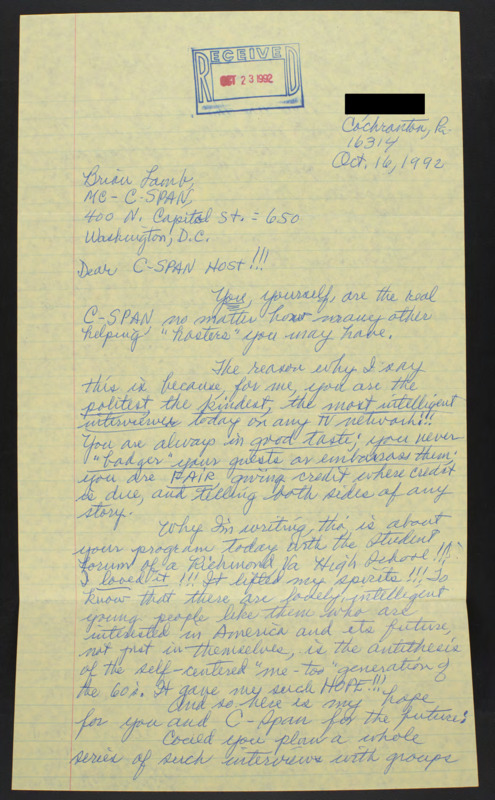 RECEIVED
OCT 23 1992
Cochranton, Pa.
16314
Oct. 16, 1992
Brian Lamb,
MC - C-SPAN,
400 N. Capitol St. = 650
Washington, D.C.
Dear C-SPAN HOST!!!
You, yourself, are the real
C-SPAN no matter how many other
helping "hosters" you may have.
The reason why I say
this is because, for me, you are the
politest, the kindest, the most intelligent
interviewer today on any TV network!!!
You are always in good taste; you never
"badger" your guests or embarass them;
you are FAIR giving credit where credit
is due, and telling both sides of any
story.
Why I'm writing, tho, is about
your program today with the Student
Forum of a Richmond Va High School!!!
I loved it!!! It lifted my spirits!!! To
know that there are lovely, intelligent
young people like them who are
interested in America and its future,
not just in themselves, is the antithesis
of the self-centered "me-too" generation of
the 60s. It gave me such HOPE!!!
And so here is my hope
for you and C-Span for the future:
Could you plan a whole
series of such interviews with groups